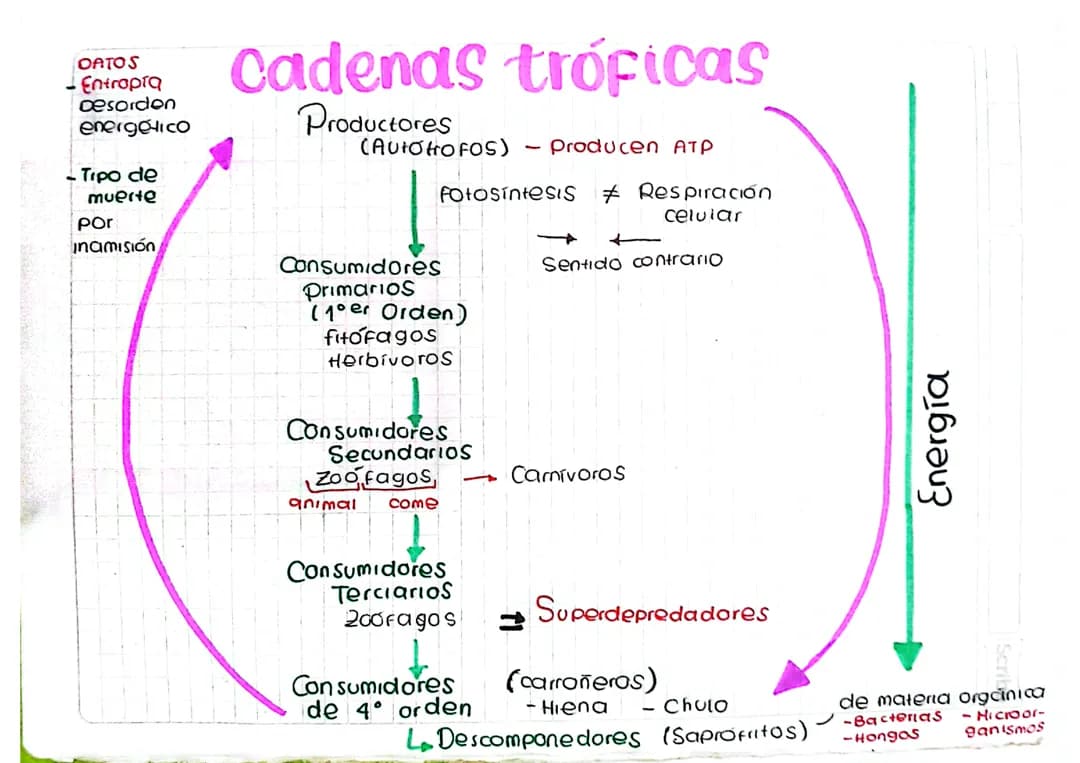 Cadenas tróficas
DATOS
- Entropía
Desorden
energético
- Tipo de
muerte
por
inamisión
Productores
(Autótrofos) - Producen ATP
Fotosíntesis ≠ Respiración
celular
→ ←
Sentido contrario
Consumidores
primarios
(1°er Orden)
fitófagos
Herbívoros
Consumidores
Secundarios
Zoófagos → Carnívoros
animal come
Consumidores
Terciarios
zoófagos ⇒ Superdepredadores
Consumidores
de 4° orden
(carroñeros)
- Hiena - Chulo
Descomponedores (Saprófitos)
de materia orgánica
- Bacterias - Microor-
- Hongos ganismos
Energía